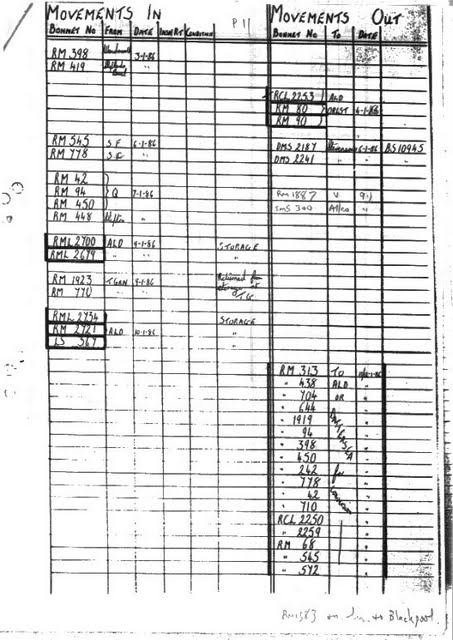 MOVEMENTS IN
P 11
MOVEMENTS OUT
BONNET NO FROM DATE INW RT CONDITION
BONNET NO TO DATE
RM 398 3-1-86
RM 419
RCL 2253 ALD
RM 80 6-1-86
RM 90
RM 545 SF 6-1-86
RM 778 SF
DMS 2187 6-1-86 BS 10945
DMS 2241 " "
RM 42
RM 94 Q 7-1-86
RM 450
RM 448 "
RM 1887 V
SMS 340
RML 2700 ALD 9-1-86 STORAGE
RML 2679 " " "
RM 1923 9-1-86 Returned for
RM 770 " " storage at
RML 2734 STORAGE
RM 2721 ALD 10-1-86 "
LS 567 "
RM 313 TO
" 438 ALD "
" 704 OR "
" 644 "
" 1919 "
" 94 "
" 398 "
" 450 "
" 242 for "
" 778 "
" 42 "
" 710 "
RCL 2250 "
" 2259 "
RM 68 "
" 545 "
" 572 "
RM 1583 Blackpool